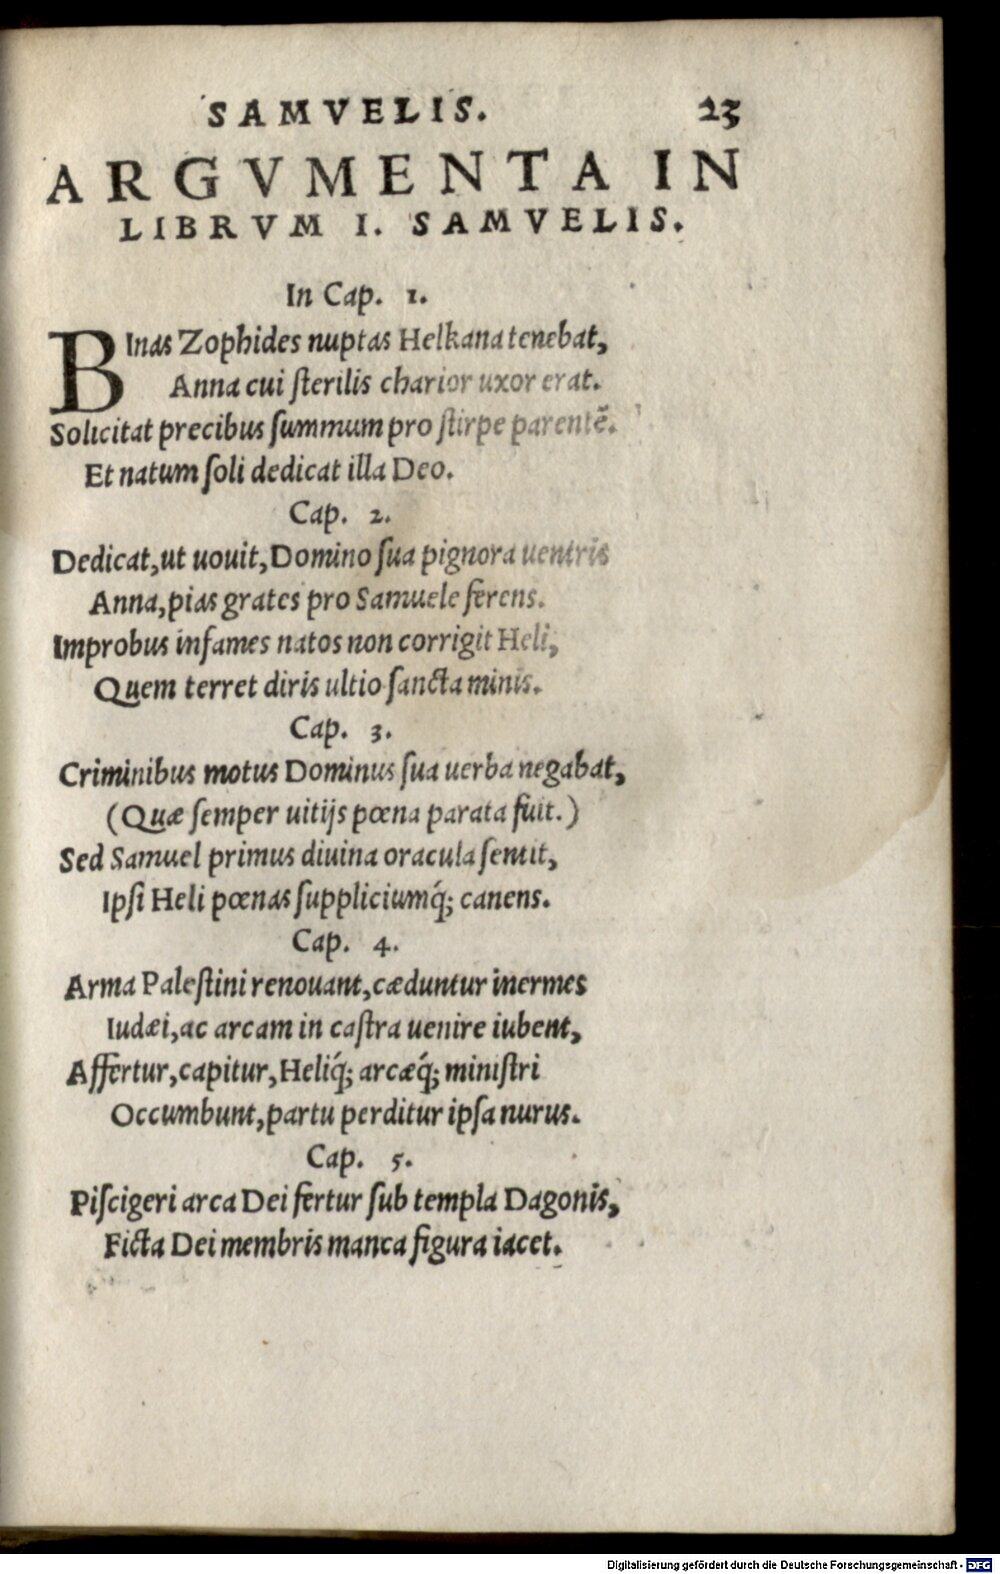 SAMVELIS. 23
ARGVMENTA IN
LIBRVM I. SAMVELIS.
In Cap. 1.
BInas Zophides nuptas Helkana tenebat,
Anna cui ſterilis charior uxor erat.
Solicitat precibus ſummum pro ſtirpe parentẽ.
Et natum ſoli dedicat illa Deo.
Cap. 2.
Dedicat, ut uouit, Domino ſua pignora uentris
Anna, pias grates pro Samuele ferens.
Improbus infames natos non corrigit Heli,
Quem terret diris ultio ſancta minis.
Cap. 3.
Criminibus motus Dominus ſua uerba negabat,
(Quæ ſemper uitijs pœna parata fuit.)
Sed Samuel primus diuina oracula ſentit,
Ipſi Heli pœnas ſuppliciumq́; canens.
Cap. 4.
Arma Paleſtini renouant, cæduntur inermes
Iudæi, ac arcam in caſtra uenire iubent,
Affertur, capitur, Heliq́; arcæq́; miniſtri
Occumbunt, partu perditur ipſa nurus.
Cap. 5.
Piſcigeri arca Dei fertur ſub templa Dagonis,
Ficta Dei membris manca figura iacet.
Digitalisierung gefördert durch die Deutsche Forschungsgemeinschaft - DFG